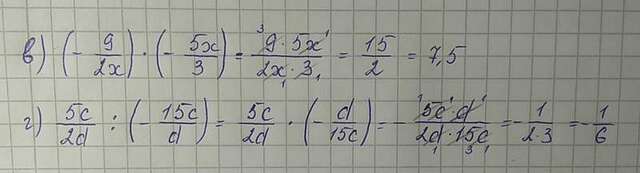 в) (- 9/2x) · (- 5x/3) = 9·5x/2x·3 = 15/2 = 7,5
г) 5c/2d : (- 15c/d) = 5c/2d · (- d/15c) = - 5c·d/2d·15c = - 1/2·3 = - 1/6